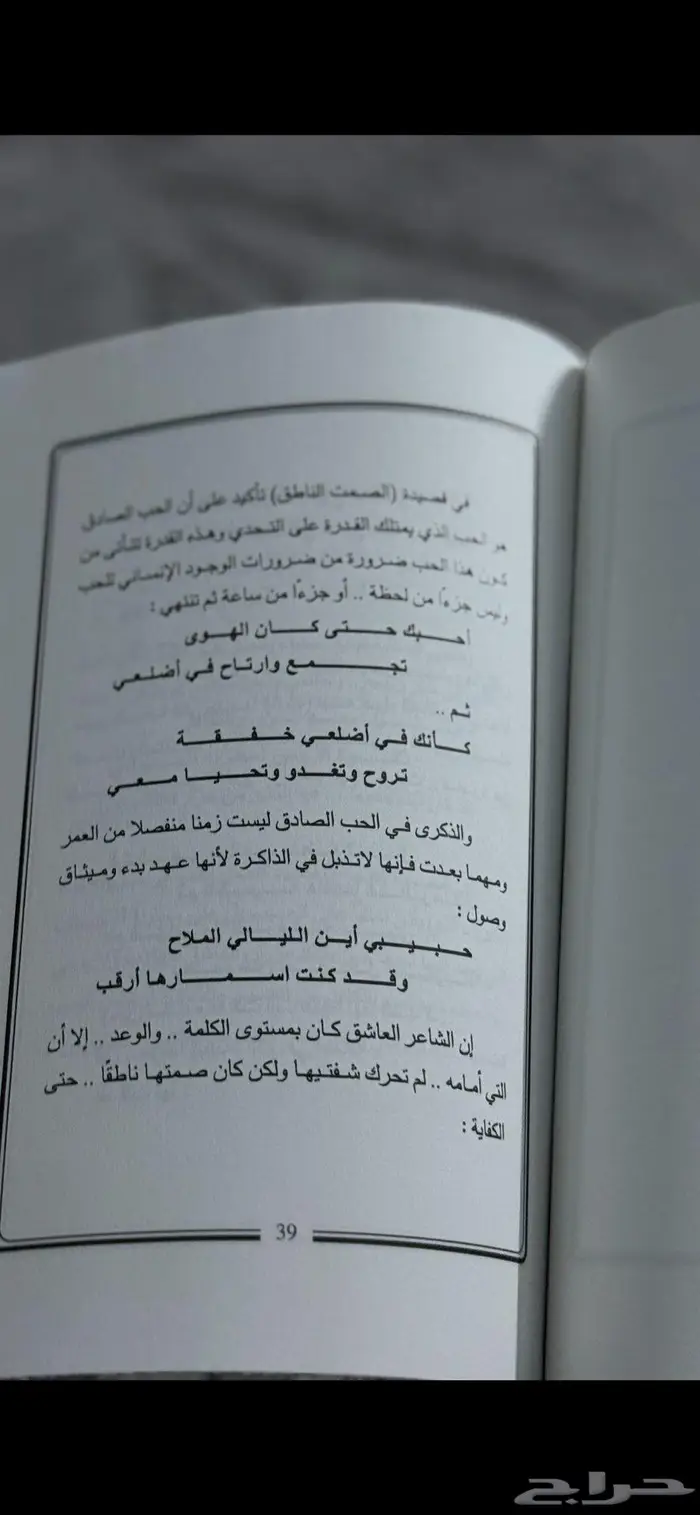 في قصيدة (الصمت الناطق) تأكيد على أن الحب الصادق
هو الحب الذي يمتلك القدرة على التحدي وهذه القدرة تتأتى من
كون هذا الحب ضرورة من ضرورات الوجود الإنساني للحب
وليس جزءًا من لحظة .. أو جزءًا من ساعة ثم تنتهي :
أحبك حتى كان الهوى
تجمع وارتاح في أضلعي
ثم ..
كأنك في أضلعي خفقة
تروح وتغدو وتحيا معي
والذكرى في الحب الصادق ليست زمنا منفصلا من العمر
ومهما بعدت فإنها لاتذبل في الذاكرة لأنها عهد بدء وميثاق
وصول :
حبيبي أين الليالي الملاح
وقد كنت اسمارها أرقب
إن الشاعر العاشق كان بمستوى الكلمة .. والوعد .. إلا أن
التي أمامه .. لم تحرك شفتيها ولكن كان صمتها ناطقًا .. حتى
الكفاية :
39
حراج